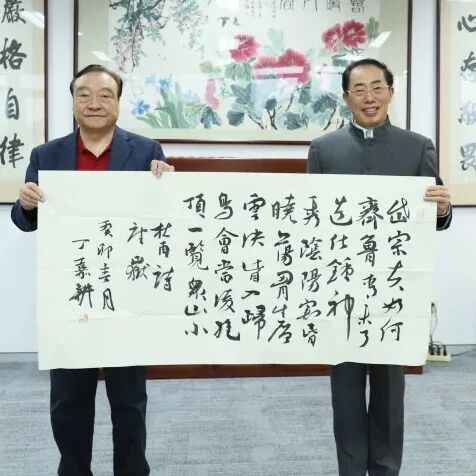 嚴格自律
岱宗夫如何
齊魯青未了
造化鍾神
秀陰陽割昏
曉蕩胸生層
雲決眥入歸
鳥會當凌絕
頂一覽眾山小
杜甫詩
望嶽
癸卯春月
丁嘉耕
心畏